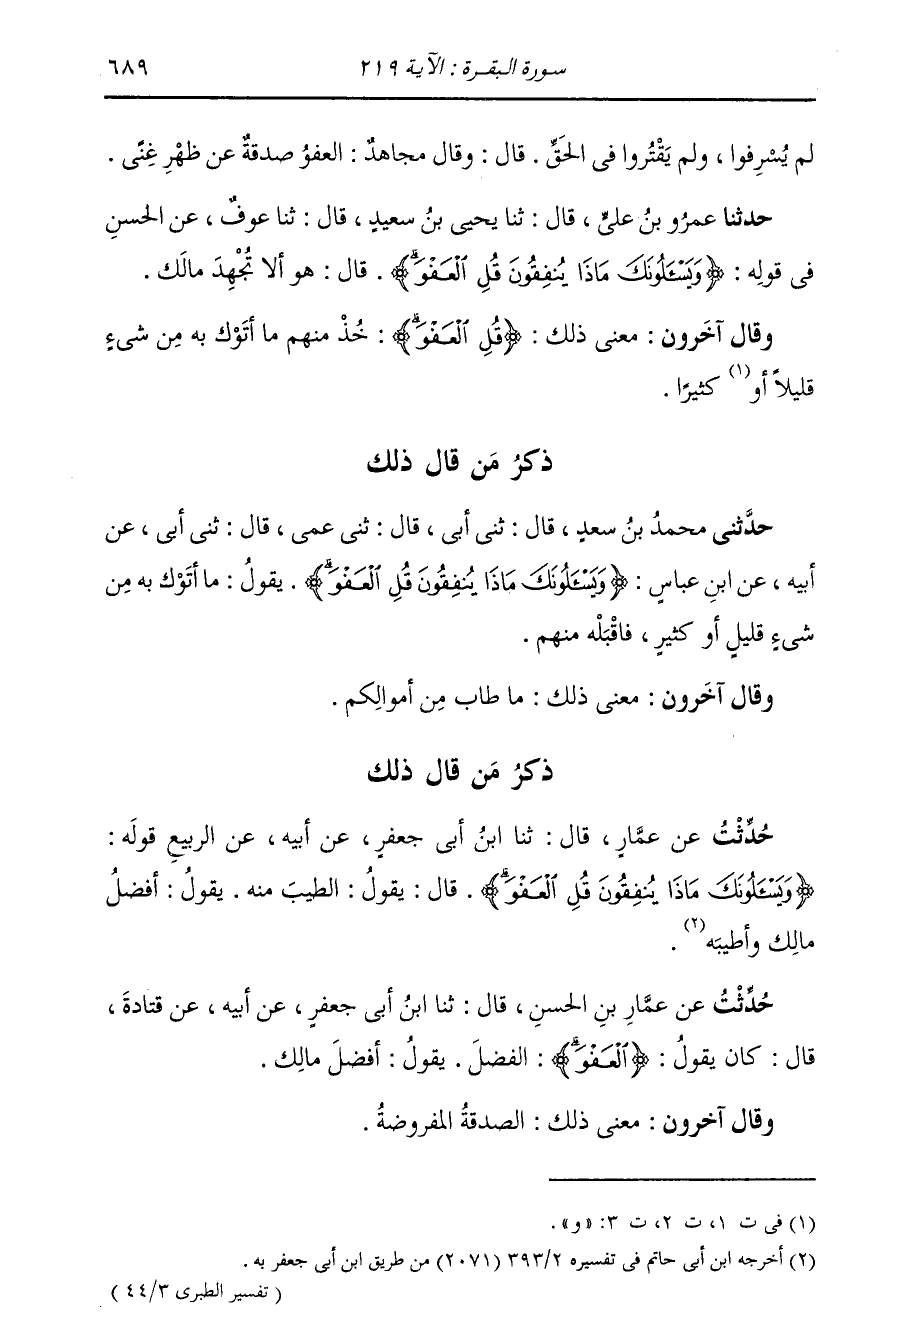 سورة البقرة : الآية ٢١٩ ٦٨٩
لم يُسْرِفوا ، ولم يَقْتُروا فى الحَقِّ . قال : وقال مجاهدٌ : العفوُ صدقةٌ عن ظهْرِ غِنًى .
حدثنا عمرُو بنُ علىٍّ ، قال : ثنا يحيى بنُ سعيدٍ ، قال : ثنا عوفٌ ، عن الحسنِ
فى قولِه : ﴿وَيَسْـَٔلُونَكَ مَاذَا يُنفِقُونَ قُلِ ٱلْعَفْوَۗ﴾ . قال : هو ألا تُجْهِدَ مالَك .
وقال آخَرون : معنى ذلك : ﴿قُلِ ٱلْعَفْوَۗ﴾ : خُذْ منهم ما أتَوْك به مِن شىءٍ
قليلاً أو(١) كثيرًا .
ذكرُ مَن قال ذلك
حدَّثنى محمدُ بنُ سعدٍ ، قال : ثنى أبى ، قال : ثنى عمى ، قال : ثنى أبى ، عن
أبيه ، عن ابنِ عباسٍ : ﴿وَيَسْـَٔلُونَكَ مَاذَا يُنفِقُونَ قُلِ ٱلْعَفْوَۗ﴾ . يقولُ : ما أتَوْك به مِن
شىءٍ قليلٍ أو كثيرٍ ، فاقْبَلْه منهم .
وقال آخَرون : معنى ذلك : ما طاب مِن أموالِكم .
ذكرُ مَن قال ذلك
حُدِّثْتُ عن عمَّارٍ ، قال : ثنا ابنُ أبى جعفرٍ ، عن أبيه ، عن الربيعِ قولَه :
﴿وَيَسْـَٔلُونَكَ مَاذَا يُنفِقُونَ قُلِ ٱلْعَفْوَۗ﴾ . قال : يقولُ : الطيبَ منه . يقولُ : أفضلُ
مالِك وأطيبَه(٢) .
حُدِّثْتُ عن عمَّارِ بنِ الحسنِ ، قال : ثنا ابنُ أبى جعفرٍ ، عن أبيه ، عن قتادةَ ،
قال : كان يقولُ : ﴿ٱلْعَفْوَۗ﴾ : الفضلَ . يقولُ : أفضلَ مالِك .
وقال آخرون : معنى ذلك : الصدقةُ المفروضةُ .
(١) فى ت ١، ت ٢، ت ٣: «و» .
(٢) أخرجه ابن أبى حاتم فى تفسيره ٣٩٣/٢ (٢٠٧١) من طريق ابن أبى جعفر به .
( تفسير الطبرى ٤٤/٣ )